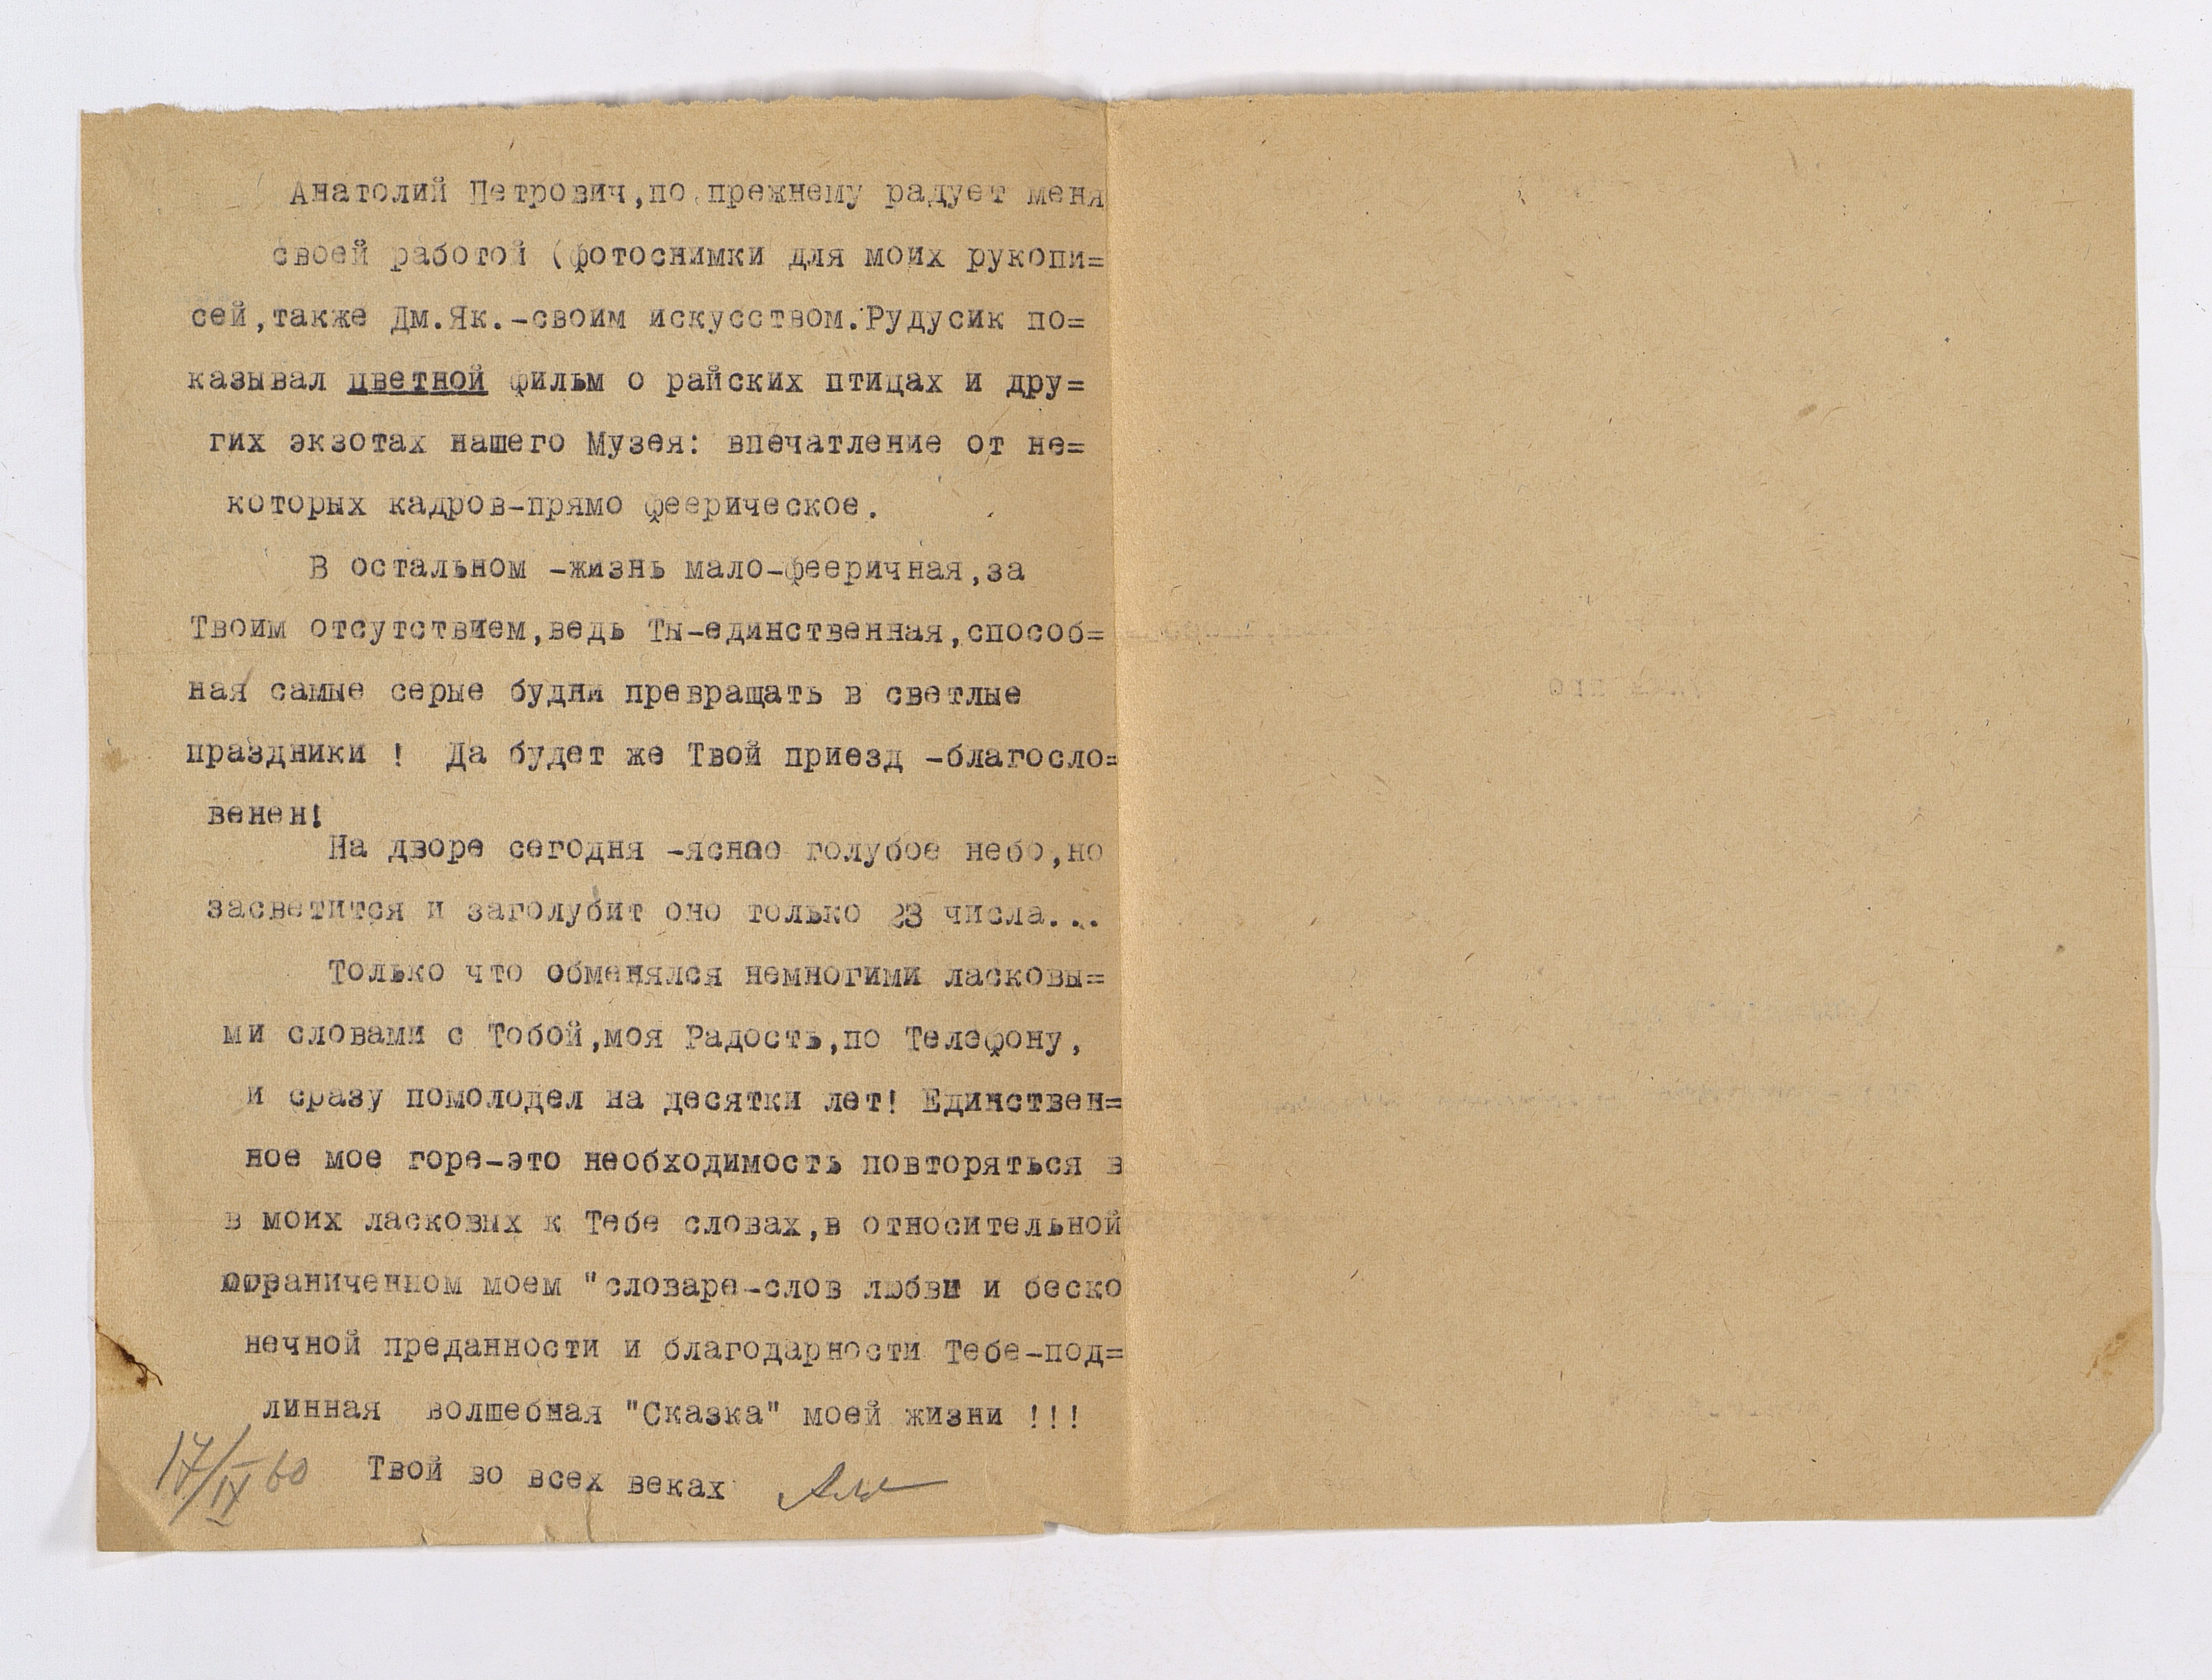 Анатолий Петрович,по прежнему радует меня
своей работой (фотоснимки для моих рукопи=
сей,также Дм.Як.-своим искусством.Рудусик по=
казывал цветной фильм о райских птицах и дру=
гих экзотах нашего Музея: впечатление от не=
которых кадров-прямо феерическое.
В остальном -жизнь мало-фееричная,за
Твоим отсутствием,ведь Ты-единственная,способ=
ная самые серые будни превращать в светлые
праздники ! Да будет же Твой приезд -благосло=
венен!
На дворе сегодня -яснао голубое небо,но
засветится и заголубит оно только 23 числа...
Только что обменялся немногими ласковы=
ми словами с Тобой,моя Радость,по Телефону,
и сразу помолодел на десятки лет! Единствен=
ное мое горе-это необходимость повторяться в
в моих ласковых к Тебе словах,в относительной
ограниченном моем "словаре-слов любви и беско
нечной преданности и благодарности Тебе-под=
линная волшебная "Сказка" моей жизни !!!
17/IX 60 Твой во всех веках